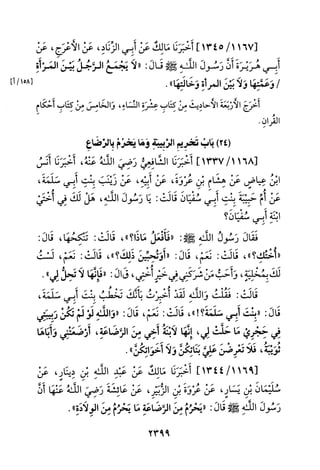 [١٣٤٥/١١٦٧] أَخْبَرَنَا مَالِكٌ عَنْ أَبِي الزِّنَادِ، عَنْ الأَعْرَجِ، عَنْ
أَبِي هُرَيْرَةَ أَنَّ رَسُولَ اللَّهِ ﷺ قَالَ: «لَا يَجْمَعُ الرَّجُلُ بَيْنَ المَرْأَةِ
/ وَعَمَّتِهَا وَلَا بَيْنَ المرأةِ وَخَالَتِهَا». [١٥٨/أ]
أَخْرَجَ الأَرْبَعَةَ الأَحَادِيثَ مِنْ كِتَابِ عِشْرَةِ النِّسَاءِ، وَالخَامِسَ مِنْ كِتَابِ أَحْكَامِ
القُرآنِ.
(٢٤) بَابُ تَحْرِيمِ الرَّبِيبَةِ وَمَا يَحْرُمُ بِالرَّضَاعِ
[١٣٣٧/١١٦٨] أَخْبَرَنَا الشَّافِعِيُّ رَضِيَ اللَّهُ عَنْهُ، أَخْبَرَنَا أَنَسُ
ابْنُ عِيَاضٍ عَنْ هِشَامِ بْنِ عُرْوَةَ، عَنْ أَبِيْهِ، عَنْ زَيْنَبَ بِنْتِ أَبِي سَلَمَةَ،
عَنْ أُمِّ حَبِيْبَةَ بِنْتِ أَبِي سُفْيَانَ قَالَتْ: يَا رَسُولَ اللَّهِ، هَلْ لَكَ فِي أُخْتِيْ
ابْنَةِ أَبِي سُفْيَانَ؟
فَقَالَ رَسُولُ اللَّهِ ﷺ: «فَأَفْعَلُ مَاذَا؟»، قَالَتْ: تَنْكِحُهَا، قَالَ:
«أُخْتُكِ؟»، قَالَتْ: نَعَمْ، قَالَ: «أَوَتُحِبِّينَ ذَلِكَ؟»، قَالَتْ: نَعَمْ، لَسْتُ
لَكَ بِمُخْلِيَةٍ، وَأَحَبُّ مَنْ شَرَكَنِي فِي خَيْرٍ أُخْتِي، قَالَ: «فَإِنَّهَا لَا تَحِلُّ لِي».
قَالَتْ: فَقُلْتُ وَاللَّهِ لَقَدْ أُخْبِرْتُ بِأَنَّكَ تَخْطُبُ بِنْتَ أَبِي سَلَمَةَ،
قَالَ: «بِنْتَ أَبِي سَلَمَةَ؟!»، قَالَتْ: نَعَمْ، قَالَ: «وَاللَّهِ لَوْ لَمْ تَكُنْ رَبِيبَتِي
فِي حَجْرِيْ مَا حَلَّتْ لِي، إِنَّهَا لَابْنَةُ أَخِي مِنَ الرَّضَاعَةِ، أَرْضَعَتْنِي وَأَبَاهَا
ثُوَيْبَةُ، فَلَا تَعْرِضْنَ عَلَيَّ بَنَاتِكُنَّ وَلَا أَخَوَاتِكُنَّ».
[١٣٤٤/١١٦٩] أَخْبَرَنَا مَالِكٌ عَنْ عَبْدِ اللَّهِ بْنِ دِينَارٍ، عَنْ
سُلَيْمَانَ بْنِ يَسَارٍ، عَنْ عُرْوَةَ بْنِ الزُّبَيْرِ، عَنْ عَائِشَةَ رَضِيَ اللَّهُ عَنْهَا أَنَّ
رَسُولَ اللَّهِ ﷺ قَالَ: «يَحْرُمُ مِنَ الرَّضَاعَةِ مَا يَحْرُمُ مِنَ الوِلَادَةِ».
٢٣٩٩